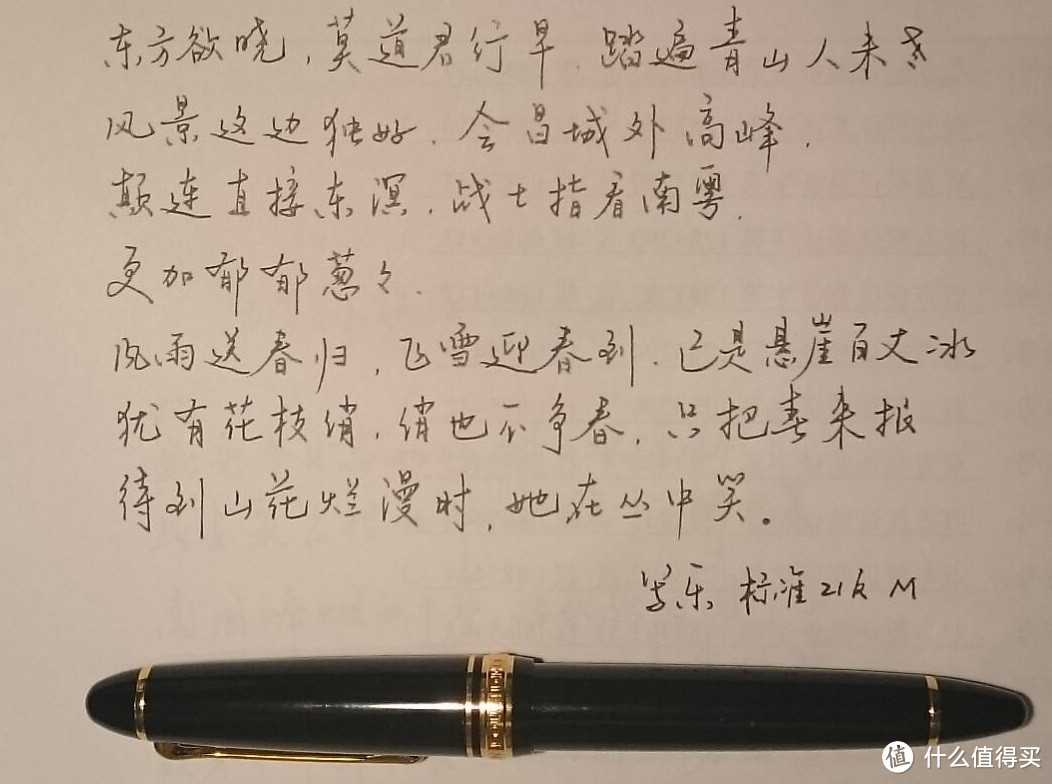 东方欲晓，莫道君行早．踏遍青山人未老
风景这边独好．会昌城外高峰．
颠连直接东溟．战士指看南粤．
更加郁郁葱々．
风雨送春归，飞雪迎春到．已是悬崖百丈冰
犹有花枝俏．俏也不争春，只把春来报
待到山花烂漫时，她在丛中笑。
写乐 标准21K M
值 什么值得买